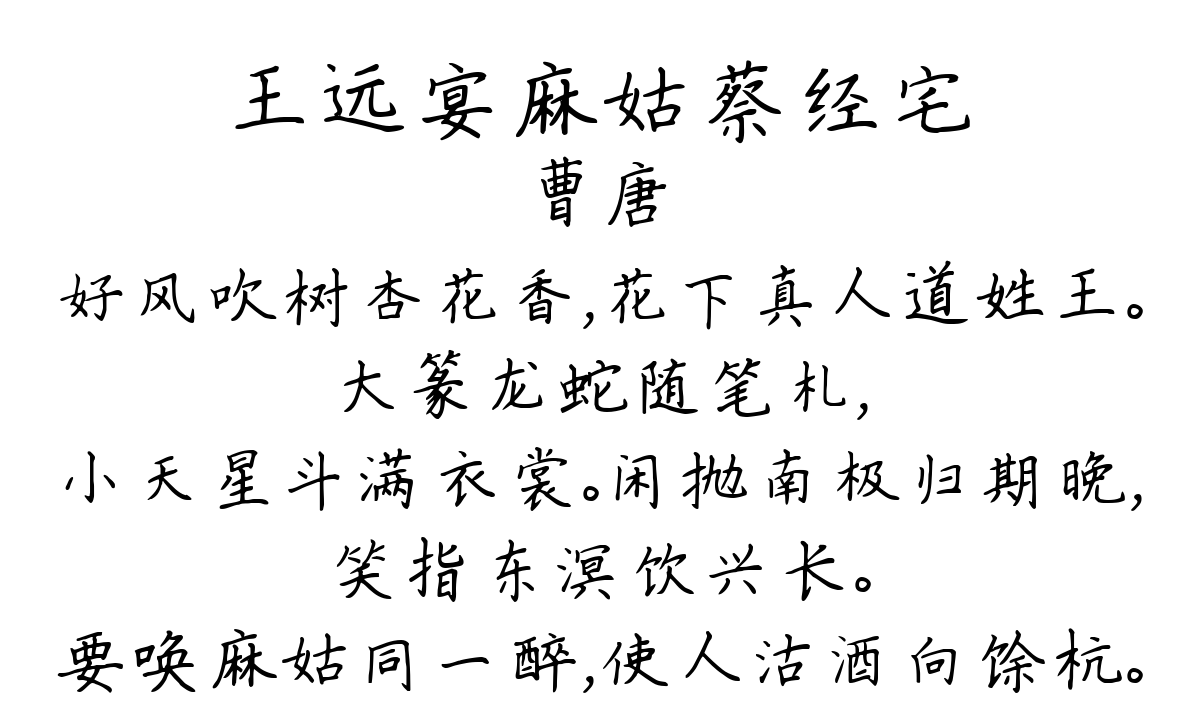 王远宴麻姑蔡经宅
曹唐
好风吹树杏花香,花下真人道姓王。
大篆龙蛇随笔札,
小天星斗满衣裳。闲抛南极归期晚,
笑指东溟饮兴长。
要唤麻姑同一醉,使人沽酒向馀杭。